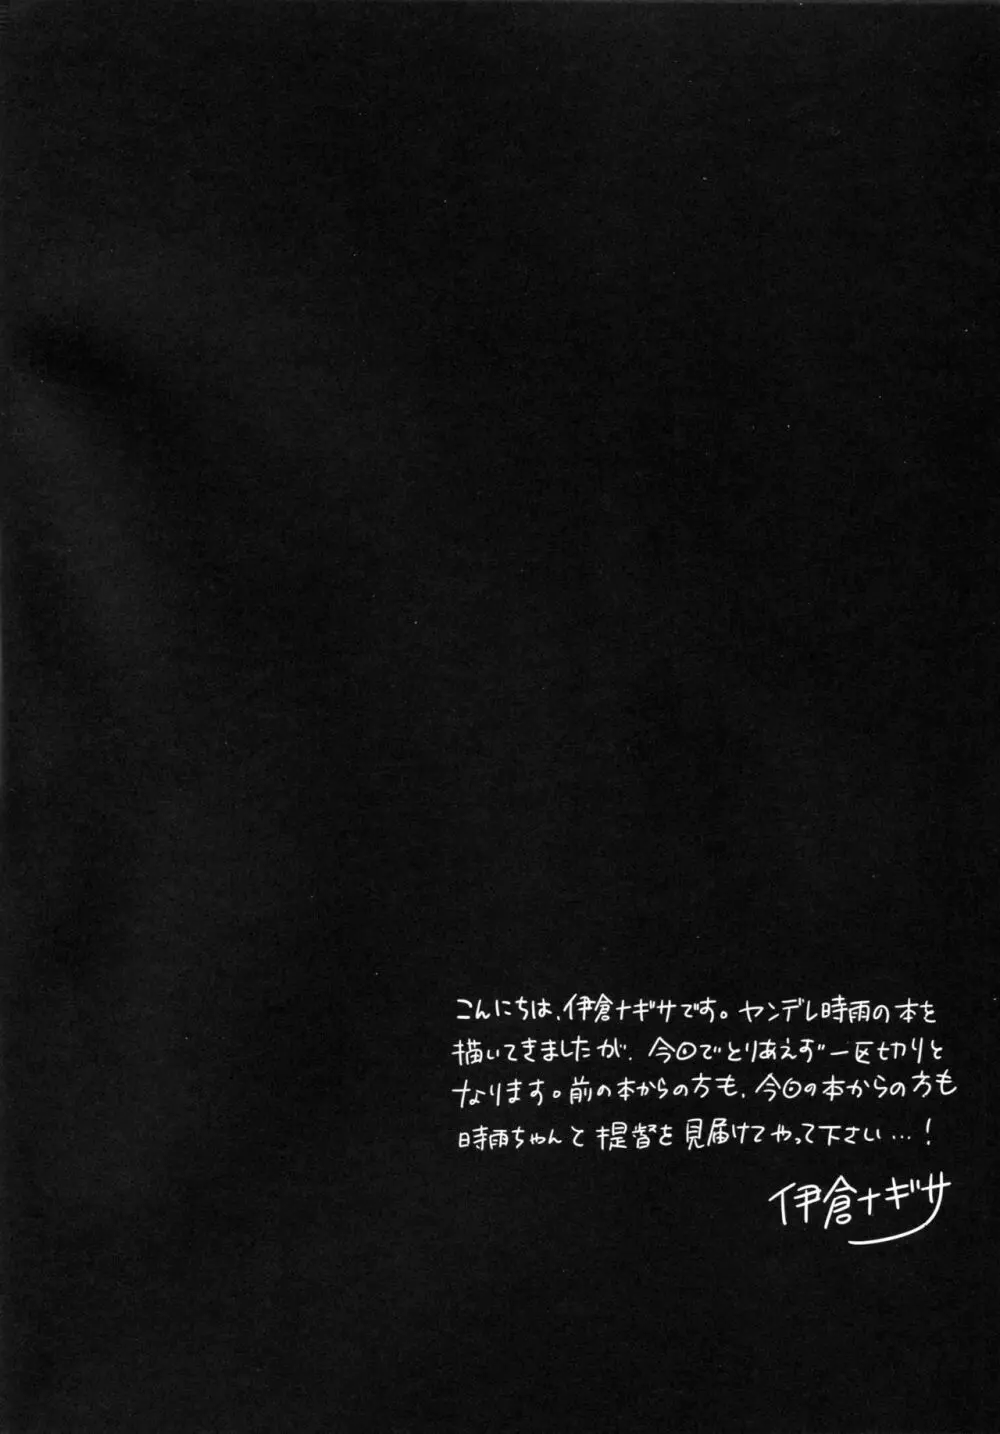 こんにちは、伊倉ナギサです。ヤンデレ時雨の本を
描いてきましたが、今回でとりあえず一区切りと
なります。前の本からの方も、今回の本からの方も
時雨ちゃんと提督を見届けてやって下さい…！
伊倉ナギサ